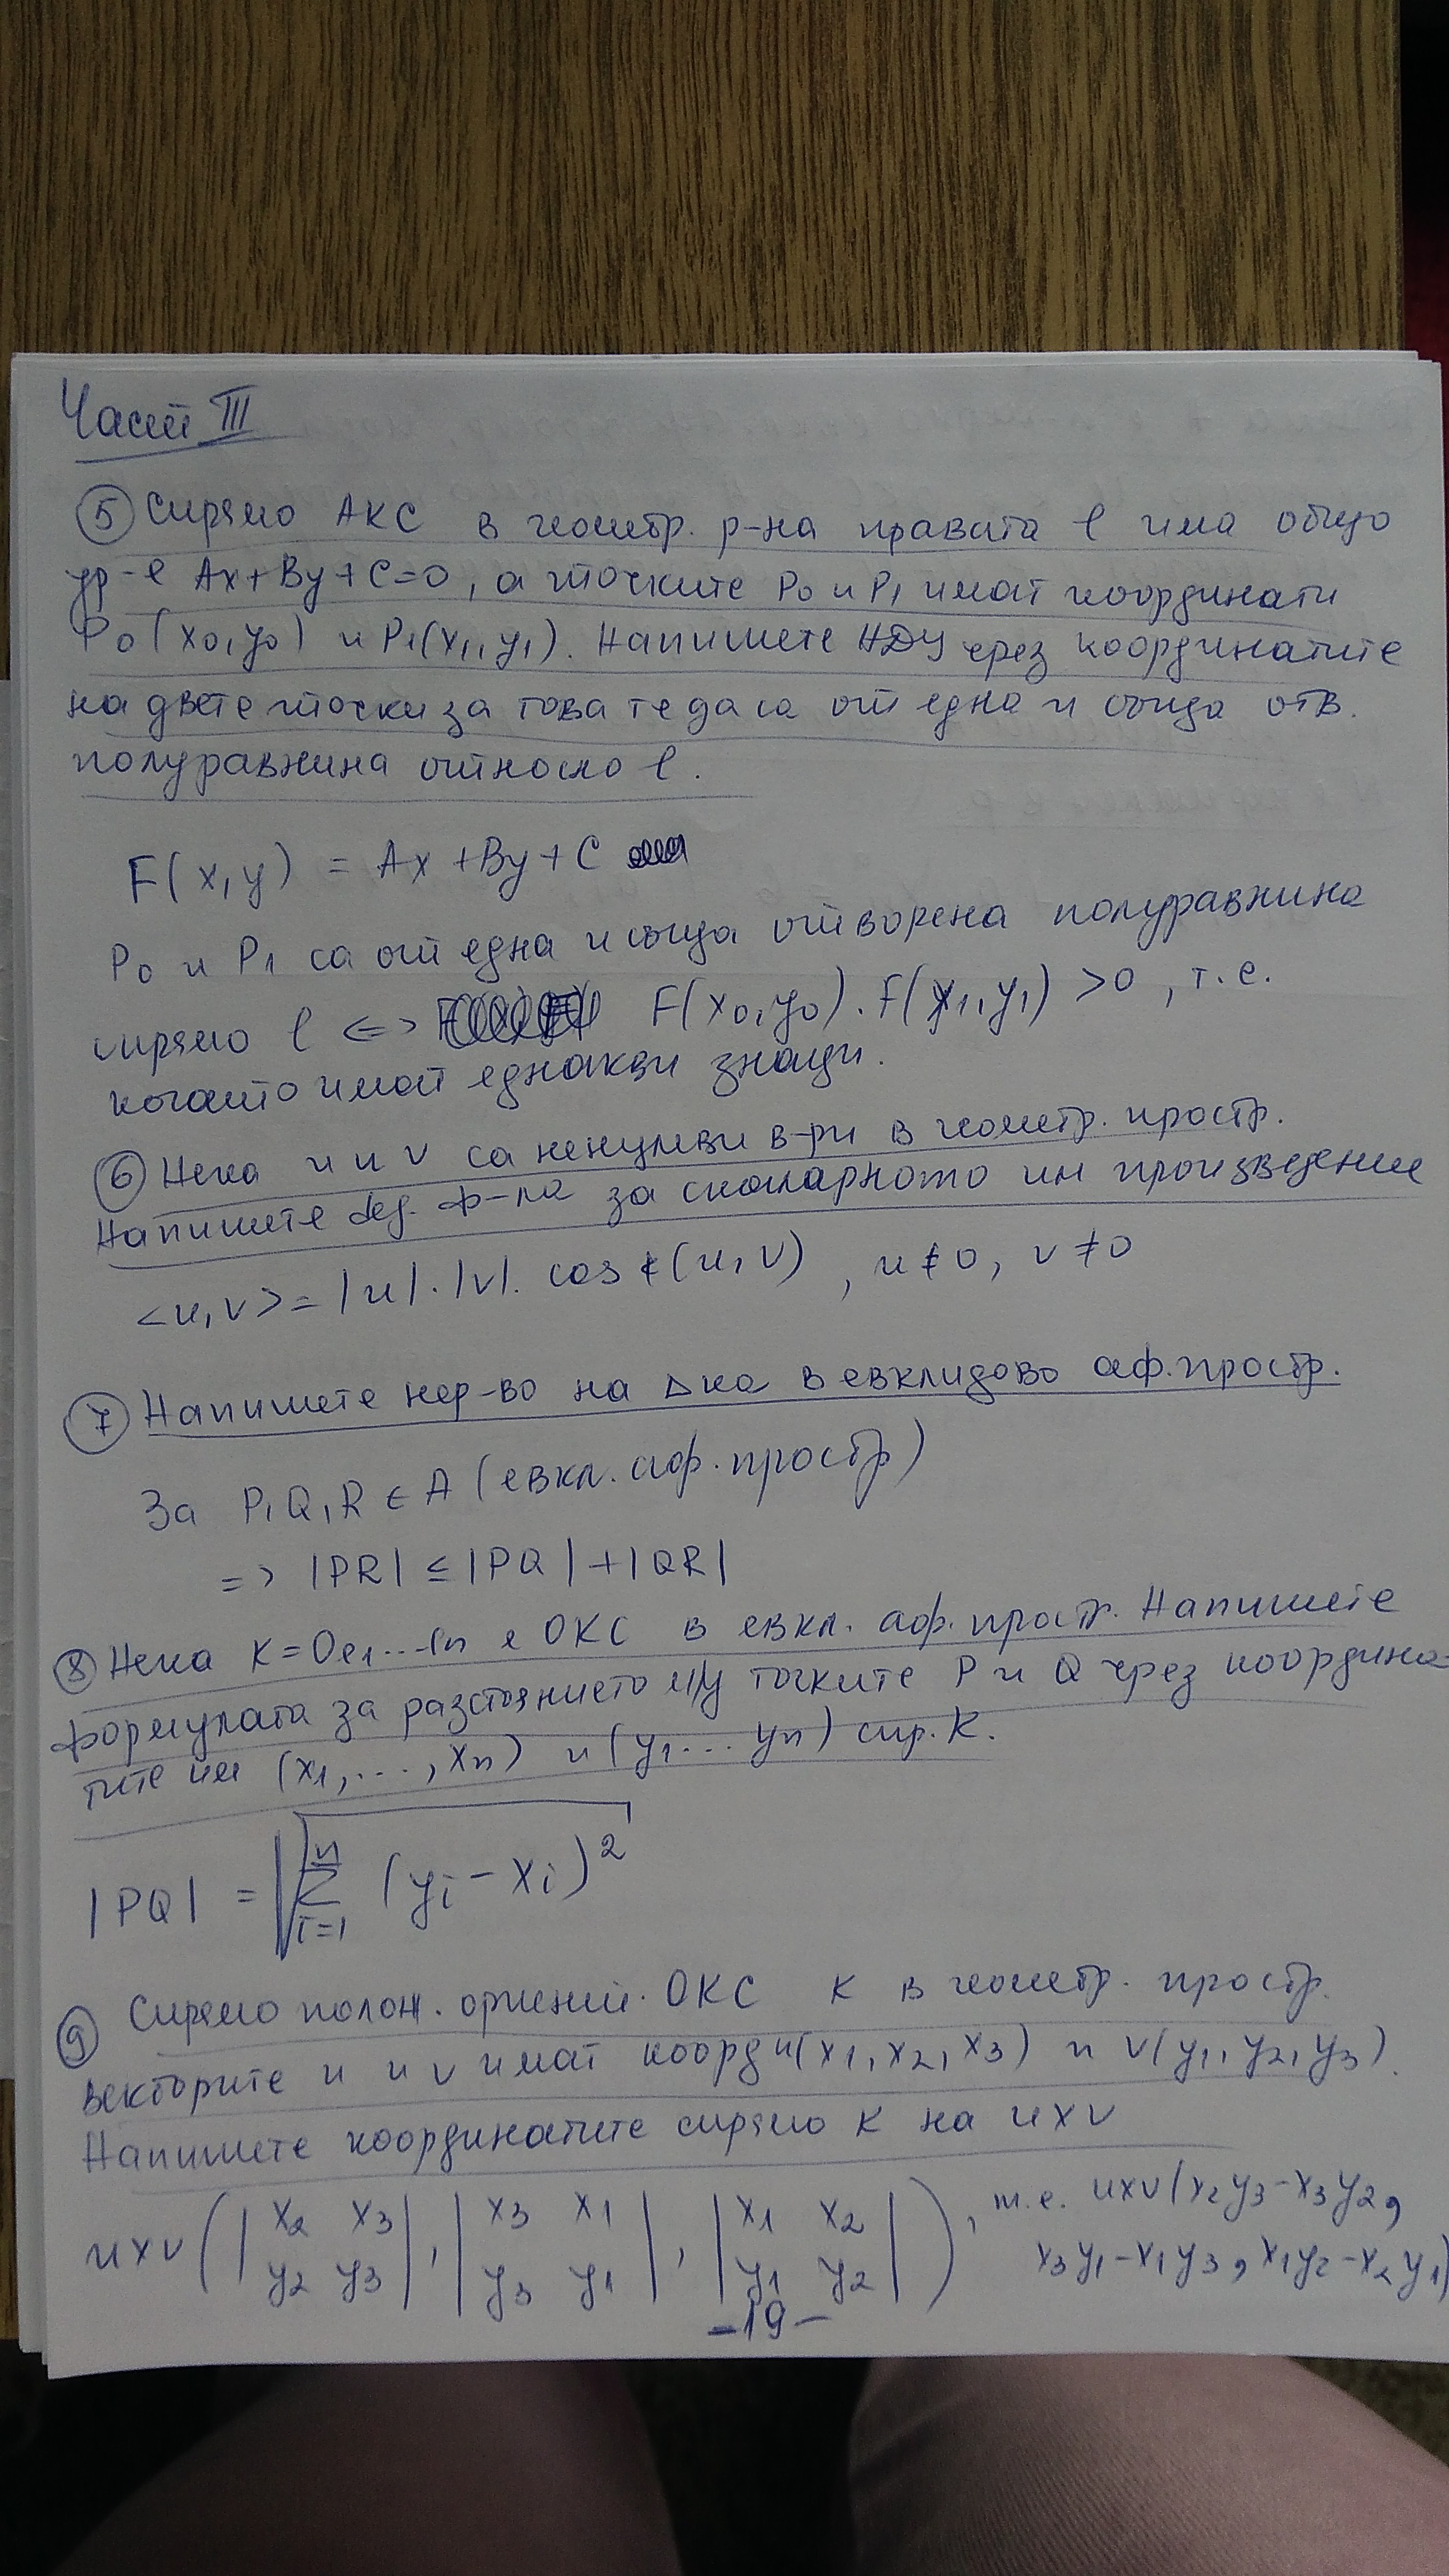 Част III
⑤ Спрямо АКС в геометр. р-на правата l има общо
ур-е Ax+By+C=0, а точките P₀ и P₁ имат координати
P₀(x₀,y₀) и P₁(x₁,y₁). Напишете НДУ през координатите
на двете точки за това те да са от една и съща отв.
полуравнина относно l.
F(x,y) = Ax+By+C
P₀ и P₁ са от една и съща отворена полуравнина
спрямо l <=> F(x₀,y₀).F(x₁,y₁)>0, т.е.
когато имат еднакви знаци.
⑥ Нека u и v са ненулеви в-ри в геометр. простр.
Напишете деф. ф-ла за скаларното им произведение
<u,v>=|u|.|v|.cos∢(u,v), u≠0, v≠0
⑦ Напишете нер-во на Δка в евклидово аф.простр.
За P,Q,R ∈ A (евкл. аф. простр)
=> |PR| ≤ |PQ|+|QR|
⑧ Нека K=Oe₁...en е ОКС в евкл. аф. простр. Напишете
формулата за разстоянието м/у точките P и Q чрез координа-
тите им (x₁,...,xn) и (y₁...yn) спр. K.
|PQ| = √(∑ᵢ₌₁ⁿ (yᵢ-xᵢ)²)
⑨ Спрямо полож. ориент. ОКС K в геометр. простр.
векторите u и v имат коорд u(x₁,x₂,x₃) и v(y₁,y₂,y₃).
Напишете координатите спрямо K на u×v
u×v(|x₂ x₃|, |x₃ x₁|, |x₁ x₂|), т.е. u×v(x₂y₃-x₃y₂,
|y₂ y₃| |y₃ y₁| |y₁ y₂| x₃y₁-x₁y₃, x₁y₂-x₂y₁)
-19-